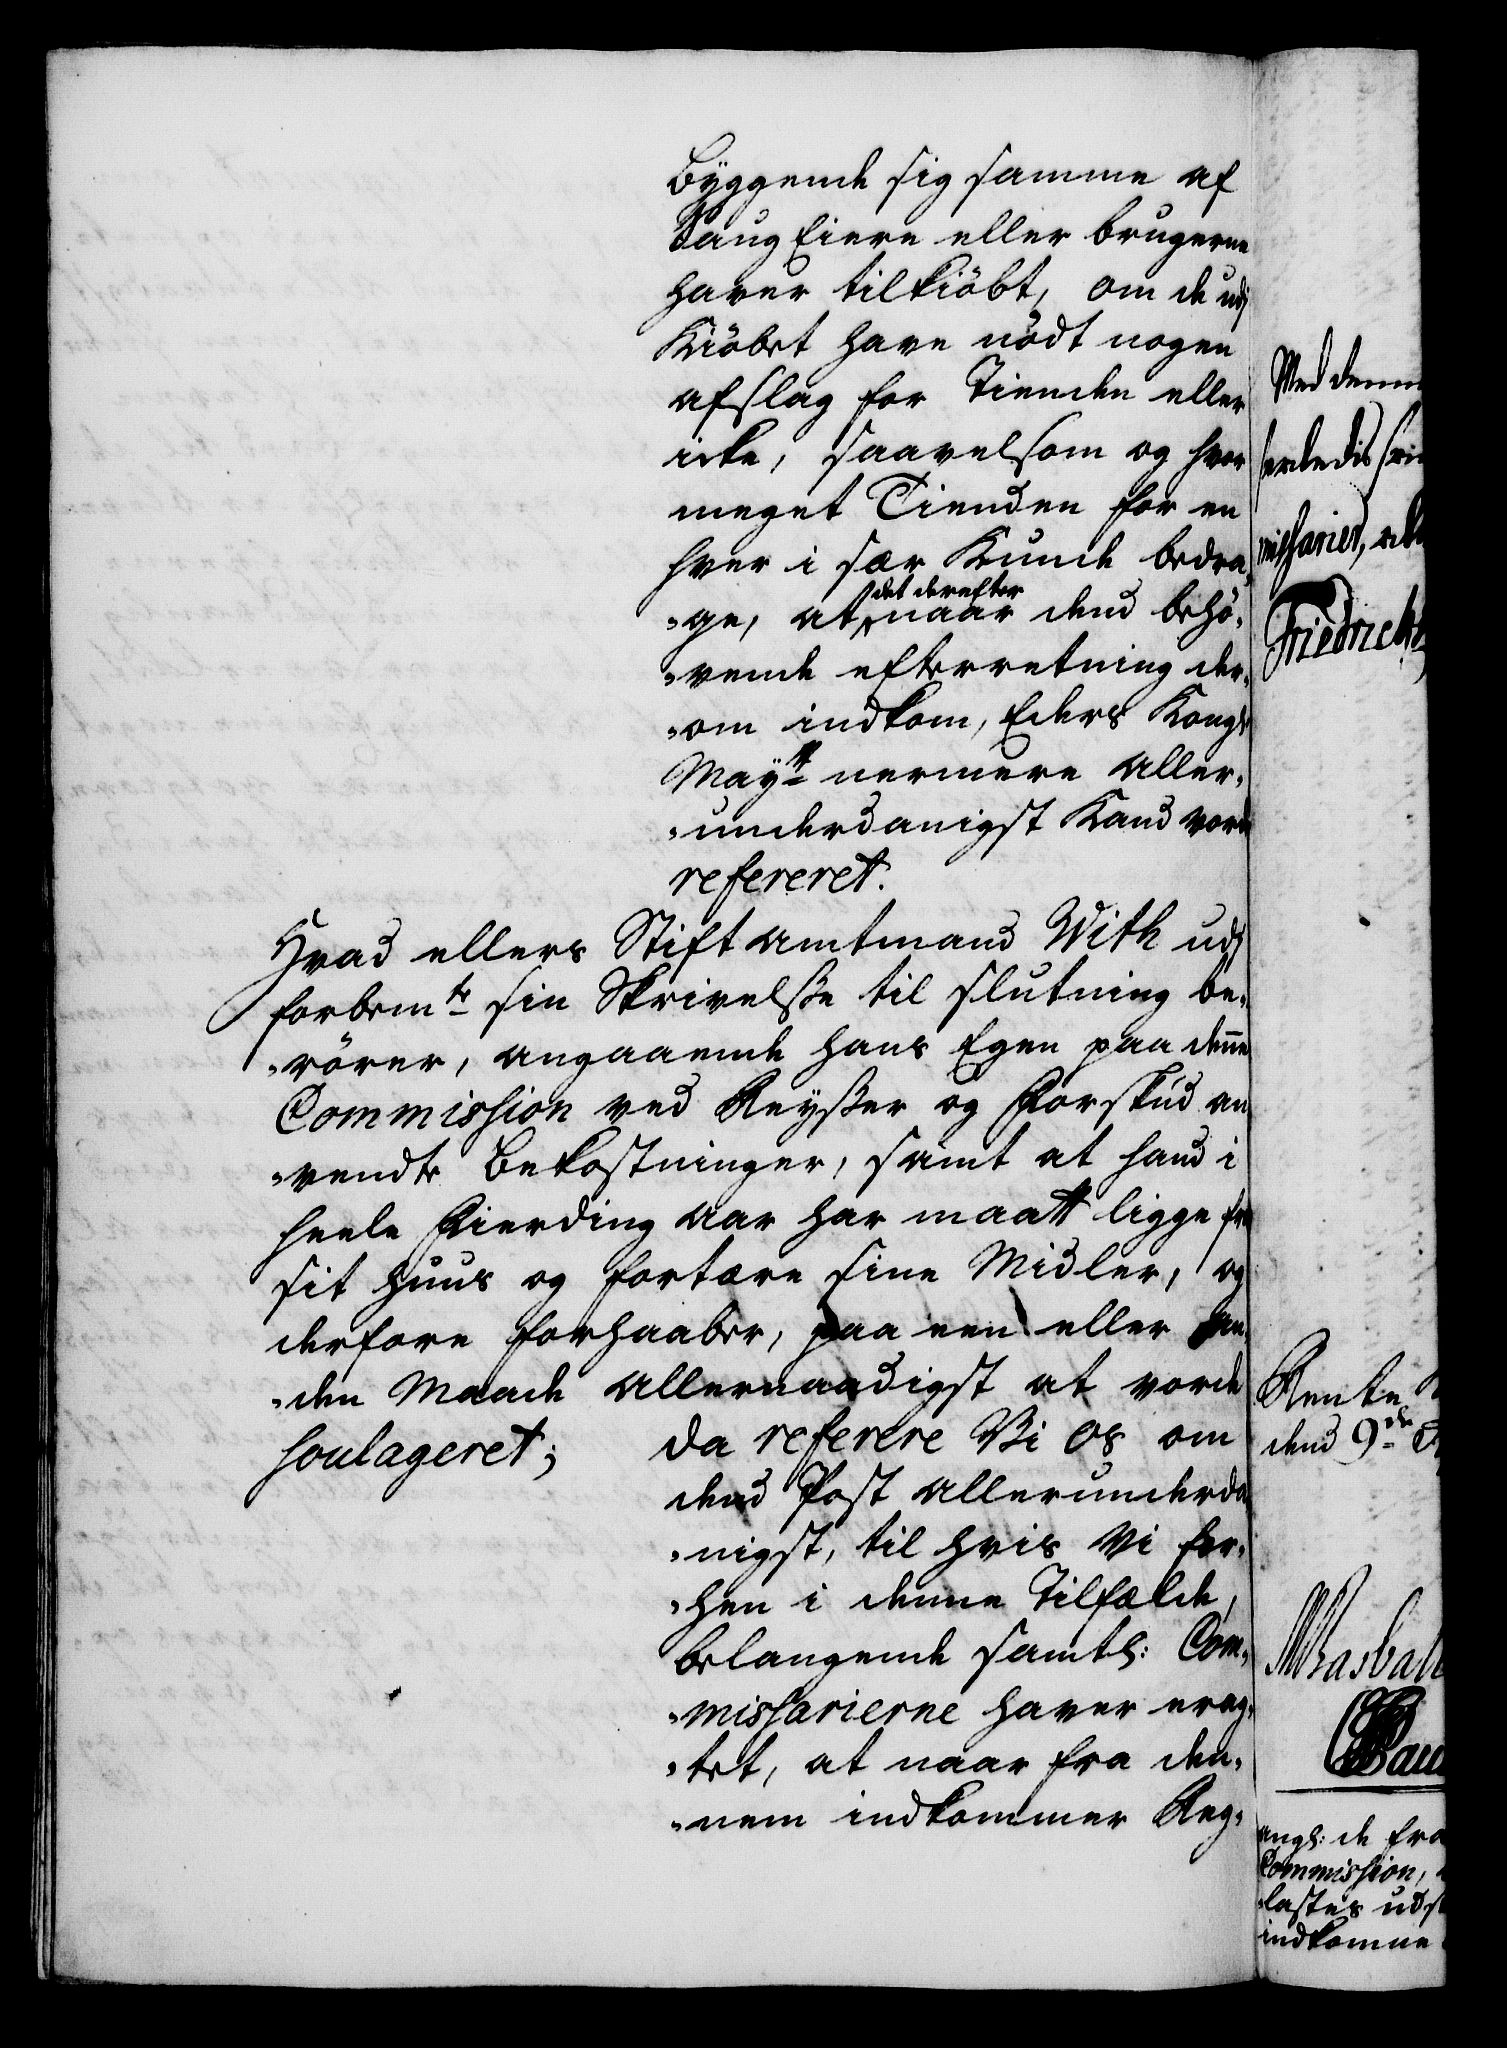 Byggende sig samme af
Saug Eiere eller brugerne
haver tilkiöbt, om de udj
Kiöbet have nödt nogen
afslag for Tienden eller
icke, saavelsom og hvor
meget Tienden for en
hver i sær kunde bedra,,
,,ge, at det derefter naar dend behö,,
,,vende efterretning der,,
,,om indkom, Eders Kongl:
Mayt nermere aller,,
,,underdanigst kand vorde
refereret.
Hvad ellers Stiftamtmand With udj
forbemte sin Skrivelsse til slutning be,,
,,rörer, angaaende hans Egen paa denne
Commission ved Reysser og Forskud an
,,vendte Bekostninger, samt at hand i
heele Fierding aar har maatt ligge fra
sit huus og fortære sine Midler, og
derfore forhaaber, paa een eller an,,
,,den Maade allernaadigst at vorde
soulageret;
da referere Vi os om
dend Post allerunderda
,,nigst, til hvis Vi for,,
,,hen i denne Tilfælde,
belangende samtl: Com,,
,,missarierne haver erag,,
,,tet, at naar fra den,,
,,nem indkommer Reg,,
Med denne
missarier,
Friedrich
Rente
dend 9de
angl: de fra
Commission,
indkomne